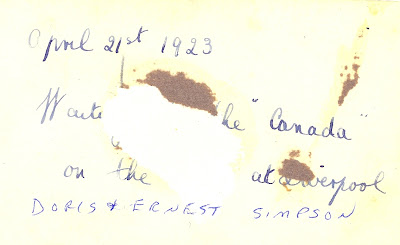 April 21st 1923
he "Canada"
on the at Liverpool
DORIS & ERNEST SIMPSON